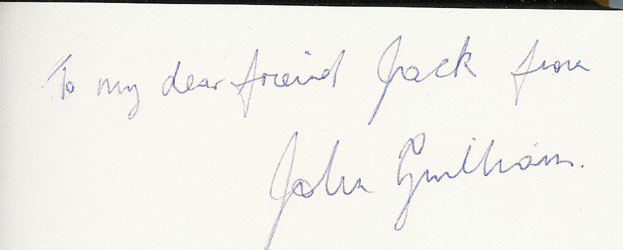 To my dear friend Jack from
John Gwilliam.